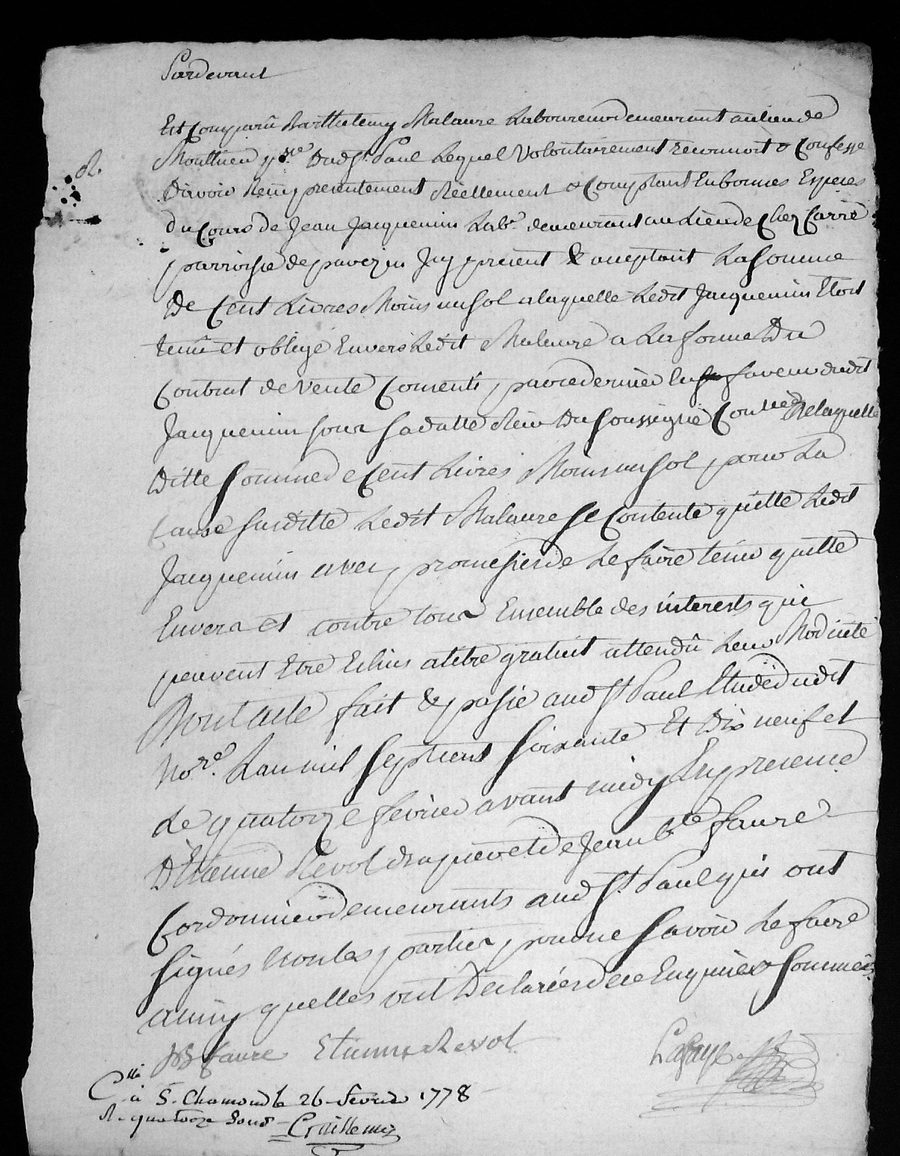 Pardevant
Est Comparû Barthelemy Malaure Laboureur demeurant au lieu de
Monthieu psse. Dud. St. Paul Lequel Volontairement reconnoit & Confesse
D'avoir Reçu presentement Réellement & Comptant En bonnes Especes
du Cours de Jean Jacquemin Labr. demeurant au Lieu de Chez Carré
parroisse de pavezin Icy present & acceptant La Somme
De Cent Livres Moins un sol a laquelle Ledit Jacquemin Etoit
tenû et obligé Envers Ledit Malaure a La forme Du
Contrat de Vente Consenti par ce dernier En faveur dudit
Jacquemin sous sa datte Reçu Du soussigné De laquelle
Ditte Somme de Cent Livres Moins un sol pour La
Cause susditte Ledit Malaure se Contente quitte Ledit
Jacquemin avec promesse de Le faire tenir quitte
Envers et contre tous Ensemble des interests qui
peuvent Etre Echus a titre gratuit attendû Leur Modicité
Dont acte fait & passé aud. St. Paul Etude dudit
Nore. L'an mil sept cent soixante Et Dix neuf et
le quatorze fevrier avant midy En presence
D'Etienne Revol et de Jean bte faure
Cordonnier demeurants aud. St. Paul qui ont
signés Non les parties pour ne savoir Le faire
ainsy quelles ont Declarées de ce Enquises & Sommées
JB faure Etienne Revol
Cllé
à St. Chamond le 26 fevrier 1778
R. quatorze sous